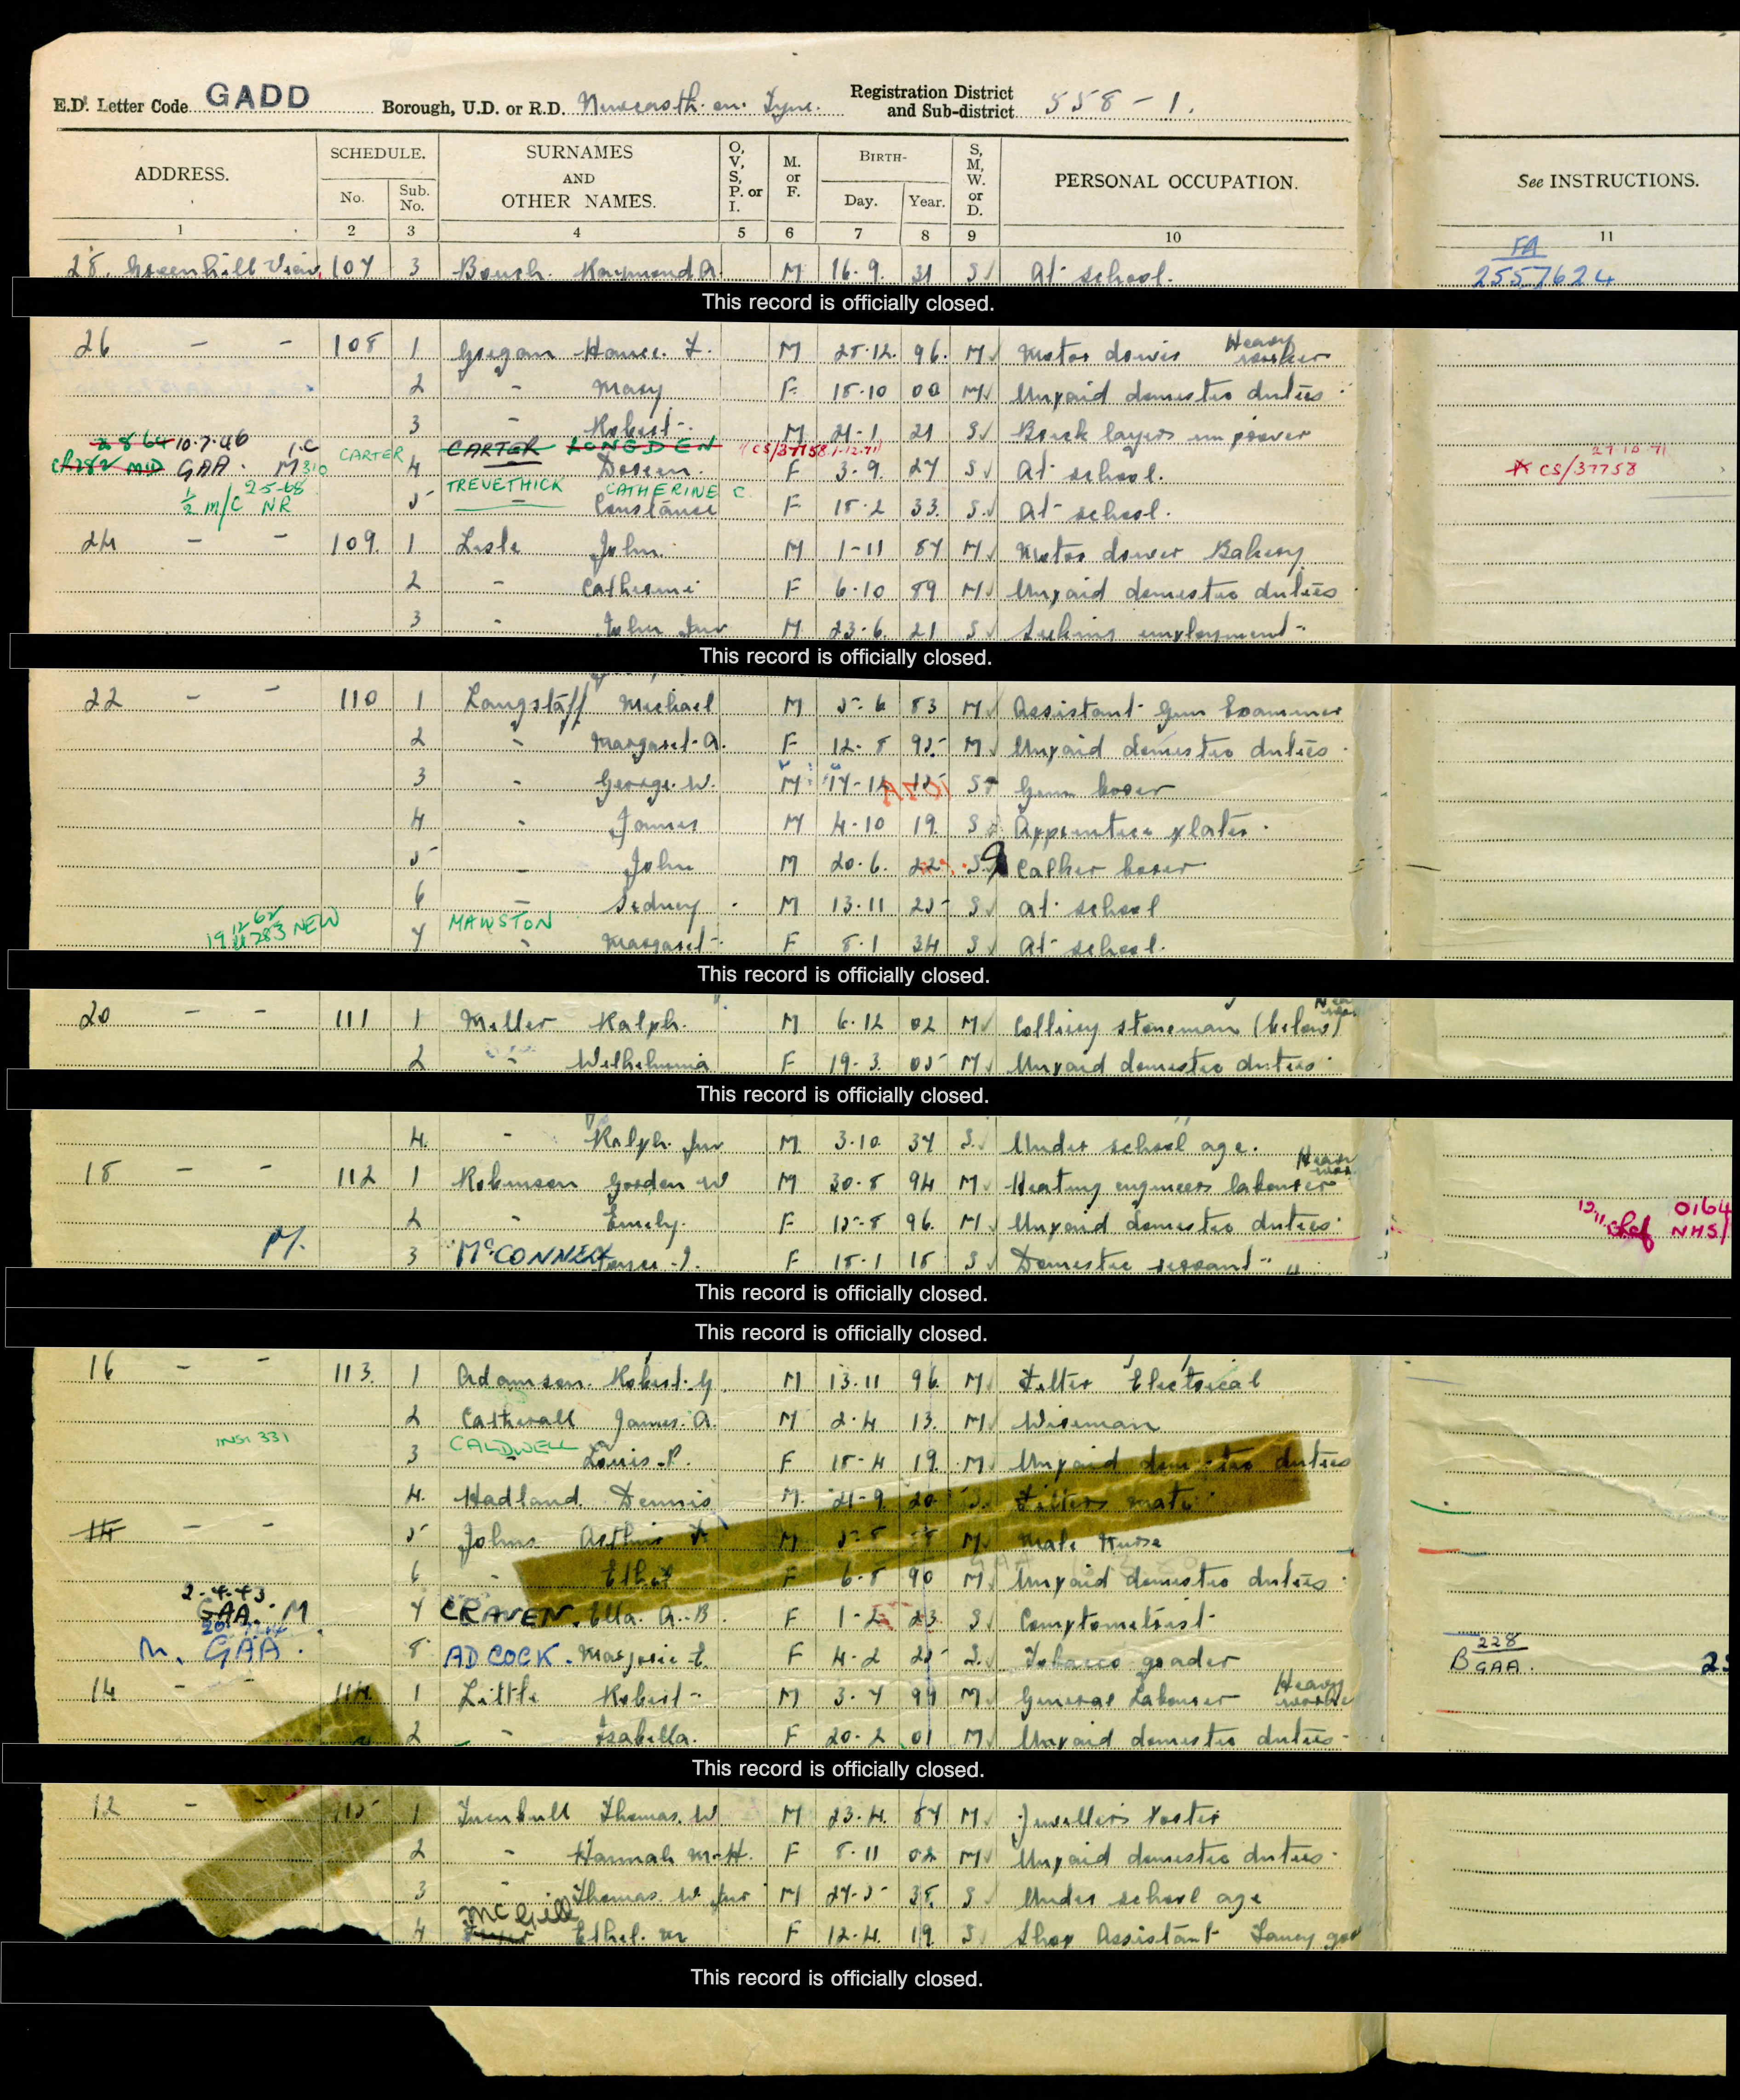 E.D. Letter Code GADD Borough, U.D. or R.D. Newcastle on Tyne. Registration District and Sub-district 558-1.
ADDRESS. SCHEDULE. No. Sub. No. SURNAMES AND OTHER NAMES. O, V, S, P. or I. M. or F. BIRTH- Day. Year. S, M, W. or D. PERSONAL OCCUPATION. See INSTRUCTIONS.
1 2 3 4 5 6 7 8 9 10 11
FA
28. Greenhill View, 107 3 Raymond A. M 16.9. 31 S At school. 2557624
This record is officially closed.
26 - - 108 1 M 28.12. 96. M Motor Heavy worker
2 - Mary F 18.10 00 M Unpaid domestic duties
3 - Robert M 21.1 21 S Brick layers
10.7.46 CARTER CARTER LONGDEN CS/37758 1-12-71 27.10.71
GAA. M 4 Doreen. F 3.9. 27 S At school. CS/37758
2-5-68 TREVETHICK CATHERINE C
1/2 m/c NR 5 - Constance F 18.2 33. S At school.
24 - - 109. 1 Lisle John M 1-11 87 M Motor driver Bakery
2 - Catherine F 6.10 89 M Unpaid domestic duties
3 - John Jnr M 23.6. 21 S Seeking employment
This record is officially closed.
22 - - 110 1 Langstaff Michael M 5.6 83 M Assistant Gun Examiner
2 - Margaret A. F 12.8 95 M Unpaid domestic duties
3 - George W. M S Gun borer
4 - James M 4.10 19. S Apprentice plater
5 - John M 20.6. 22 S
6 - Sidney M 13.11 25 S At school
MAWSTON
7 - Margaret F 8.1 34 S At school.
This record is officially closed.
20 - - 111 1 Miller Ralph. M 6.12 02 M Colliery stoneman (below)
2 - Wilhelmina F 19.3. 05 M Unpaid domestic duties
This record is officially closed.
4. - Ralph Jnr M 3.10. 37 S. Under school age.
18 - - 112 1 Robinson Gordon W M 30.8 94 M Heating engineers labourer
2 - Emily. F 15.8 96. M Unpaid domestic duties 0164
M. 3 McCONNELL F 18.1 18 S Domestic servant NHS/
This record is officially closed.
This record is officially closed.
16 - - 113. 1 Adamson Robert G M 13.11 96 M Fitter Electrical
2 Catherall James A. M 2.4 13. M Wireman
CALDWELL
3 Louis P. F 18.4 19. M Unpaid domestic duties
4. Hadland Dennis M. 21.9. 20. S. Fitters mate
14 - - 5 Johns Arthur M M Male Nurse
6 - Ethel F 6.8 90 M Unpaid domestic duties
2.4.43.
GAA. M 7 CRAVEN. Ella A. B. F 23 S Comptometrist
M. GAA. 8 ADCOCK. Marjorie E. F 4.2 25 S. Tobacco grader B 228 GAA.
14 - - 114. 1 Little Robert M 3.7 99 M General Labourer Heavy worker
2 - Isabella. F 20.2 01 M Unpaid domestic duties
This record is officially closed.
12 - - 115 1 Turnbull Thomas W M 23.4. 87 M Jewellers Porter
2 - Hannah M.H. F 8.11 02 M Unpaid domestic duties
3 - Thomas W Jnr M 27.5 38 S Under school age
McGill
4 Ethel M F 12.4. 19. S Shop Assistant Fancy
This record is officially closed.